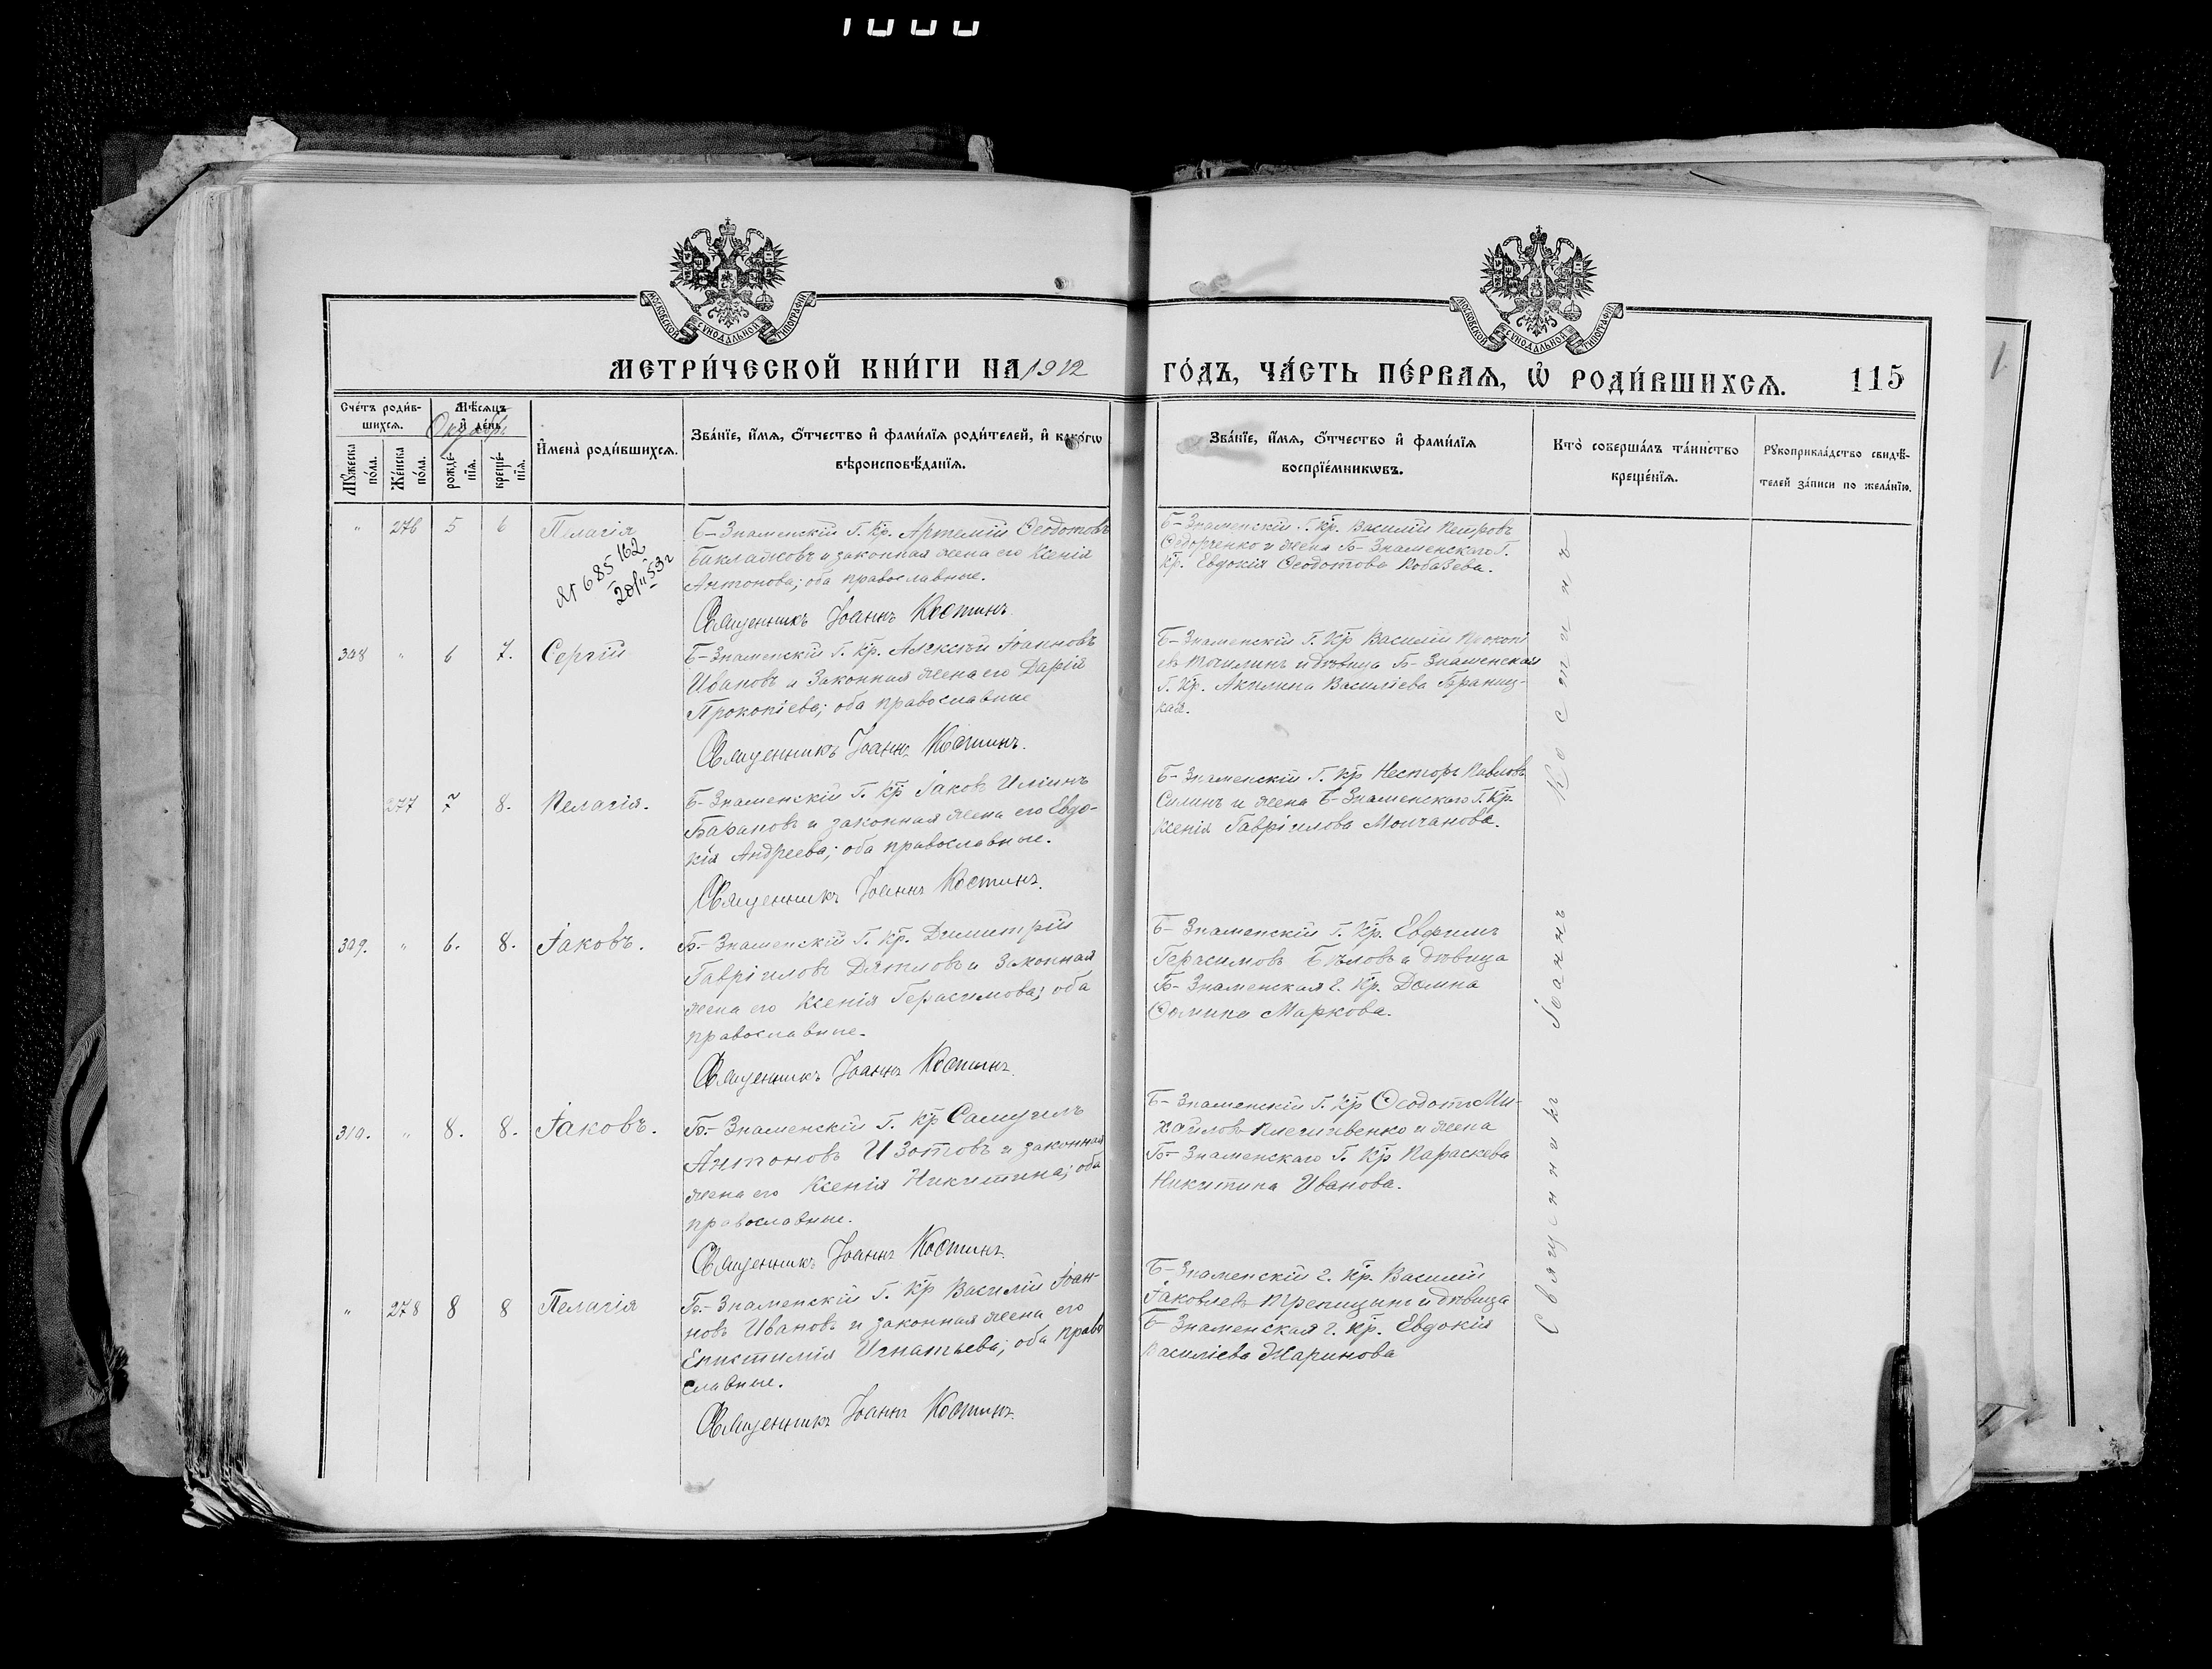 МОСКОВСКОЙ СѴНОДАЛЬНОЙ ТИПОГРАФІИ
МОСКОВСКОЙ СѴНОДАЛЬНОЙ ТИПОГРАФІИ
МЕТРИ́ЧЕСКОЙ КНИ́ГИ НА 1912 ГО́ДЪ, ЧА́СТЬ ПЕ́РВАѦ, Ѡ҆ РОДИ́ВШИХСѦ. 115
Сче́тъ роди́в-
шихсѧ.
Мꙋ́жеска по́ла.
Же́нска по́ла.
Мѣ́сѧцъ
и҆ де́нь
Октябрь
рожде́-
нїѧ.
креще́-
нїѧ.
И҆мена̀ роди́вшихсѧ.
Зва́нїе, и҆́мѧ, ѻ҆́тчество и҆ фами́лїѧ роди́телей, и҆ како́гѡ
вѣроисповѣ́данїѧ.
Зва́нїе, и҆́мѧ, ѻ҆́тчество и҆ фами́лїѧ
воспрїе́мникѡвъ.
Кто̀ соверша́лъ та́инство
креще́нїѧ.
Рꙋкоприкла́дство свидѣ́-
телей за́писи по жела́нїю.
" 276 5 6 Пелагія
685162
Б-Знаменскій Г. Кр. Артемій Ѳеодотовъ
Баклажовъ и законная жена его Ксенія
Антонова; оба православные.
Священникъ Іоаннъ Костинъ.
Б-Знаменскій Г. Кр. Василій Петровъ
Ѳедорченко и жена Б-Знаменскаго Г.
Кр. Евдокія Ѳеодотова Кобазева.
308 " 6 7. Сергій
Б-Знаменскій Г. Кр. Алексѣй Іоанновъ
Ивановъ и Законная жена его Дарія
Прокопіева; оба православные
Священникъ Іоаннъ Костинъ.
Б-Знаменскій Г. Кр Василій Прокопі
евъ и дѣвица Б-Знаменская
Г. Кр. Акилина Василіева Браниц-
кая.
277 7 8. Пелагія.
Б-Знаменскій Г. Кр Іаковъ Иліинъ
Барановъ и законная жена его Евдо-
кія Андреева; оба православные.
Священникъ Іоаннъ Костинъ.
Б-Знаменскій Г. Кр Несторъ Павловъ
Силинъ и жена Б-Знаменскаго Г. Кр.
Ксенія Гавріилова Молчанова.
309. " 6. 8. Іаковъ.
Б-Знаменскій Г. Кр. Димитрій
Гавріиловъ Дятловъ и Законная
жена его Ксенія Герасимова; оба
православные.
Священникъ Іоаннъ Костинъ.
Б-Знаменскій Г. Кр. Евфимъ
Герасимовъ Бѣловъ и дѣвица
Б-Знаменская г. Кр. Домна
Ѳомина Маркова.
310. " 8. 8. Іаковъ.
Б-Знаменскій Г. Кр Самуилъ
Антоновъ Изотовъ и законная
жена его Ксенія Никитина; оба
православные.
Священникъ Іоаннъ Костинъ.
Б-Знаменскій Г. Кр Ѳеодотъ Ми-
хайловъ и жена
Б-Знаменскаго Г. Кр Параскева
Никитина Иванова.
" 278 8 8 Пелагія
Б-Знаменскій Г. Кр Василій Іоан-
новъ Ивановъ и законная жена его
Епистимія Игнатьева; оба право
славные.
Священникъ Іоаннъ Костинъ.
Б-Знаменскій г. Кр. Василій
Іаковлевъ Трепицынъ и дѣвица
Б-Знаменская г. Кр. Евдокія
Василіева Жаринова
Священникъ Іоаннъ Костинъ